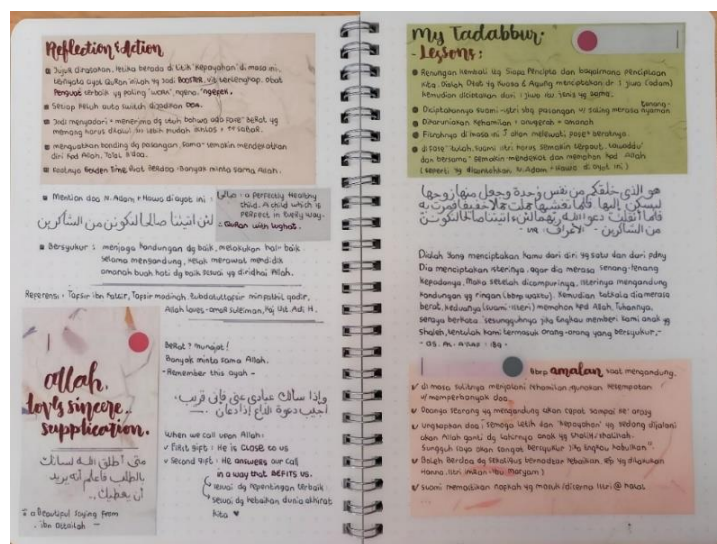 Reflection & Action
Jujur dirasakan, ketika berada di titik "kepayahan" di masa ini
ternyata ayat Quran inilah yg jadi BOOSTER, vit terlengkap, obat
Penguat terbaik yg paling "work", ngena, "ngepek".
Setiap keluh auto switch dijadikan DOA.
Jadi menyadari + menerima dg utuh bahwa ada fase berat yg
memang harus dilalui
menguatkan bonding dg pasangan, sama" semakin mendekatkan
diri kpd Allah
Saatnya Golden Time buat berdoa - banyak minta sama Allah.
Mention doa N. Adam + Hawa di ayat ini :
لئن اتيتنا صالحا لنكونن من الشاكرين
صالحا : a perfectly healthy
child. A child which is
perfect in every way.
- QuRan with lughat.
Bersyukur : menjaga kandungan dg baik, melakukan hal" baik
selama mengandung, kelak merawat mendidik
amanah buah hati dg baik sesuai yg diridhai Allah.
Referensi : Tafsir ibn Katsir, Tafsir madinah, Zubdatuttafsir minfathil qadir,
Allah loves - omar suleiman, Faj Ust. Adi H.
Allah
loves sincere..
supplication.
متى أطلق الله لسانك
بالطلب فاعلم أنه يريد
أن يعطيك..
a Beautiful saying from
ibn Ataillah -
Berat ? munajat !
Banyak minta sama Allah.
- Remember this ayah -
وإذا سألك عبادي عني فإني قريب.
أجيب دعوة الداع إذا دعان
When we call upon Allah:
✓ First gift : He is CLOSE to us
✓ Second gift : He answers our call
in a way that BEFITS us.
sesuai dg kepentingan terbaik
sesuai dg kebaikan dunia akhirat
kita ♥
My Tadabbur
- Lessons :
Renungan kembali ttg Siapa Pencipta dan bagaimana penciptaan
kita. Dialah Dzat yg Kuasa & Agung menciptakan dr 1 jiwa (adam)
kemudian diciptakan dari 1 jiwa itu, jenis yg sama.
Diciptakannya suami-istri sbg pasangan u/ saling merasa tenang-nyaman
Dikaruniakan kehamilan : anugerah + amanah
Fitrahnya di masa ini ♀ akan melewati fase" beratnya.
di fase" itulah, suami istri harus semakin
dan bersama" semakin mendekat dan memohon kpd Allah
(seperti yg dicontohkan N. Adam + Hawa di ayat ini)
هو الذي خلقكم من نفس وحدة وجعل منها زوجها
ليسكن إليها فلما تغشها حملت حملا خفيفا فمرت به
فلما أثقلت دعوا الله ربهما لئن اتيتنا صالحا لنكونن
من الشاكرين - الأعراف : ١٨٩
Dialah Yang menciptakan kamu dari diri yg satu dan dari pdny
Dia menciptakan isterinya, agar dia merasa senang-tenang
kepadanya, Maka setelah dicampurinya, isterinya mengandung
kandungan yg ringan (bbrp waktu). Kemudian tatkala dia merasa
berat, keduanya (suami istri) memohon kpd Allah, Tuhannya,
seraya berkata "sesungguhnya jika Engkau memberi kami anak yg
shaleh, tentulah kami termasuk orang-orang yang bersyukur."
- QS. Al-A'raf : 189 -
Bbrp amalan saat mengandung.
✓ di masa sulitnya menjalani kehamilan, gunakan kesempatan
u/ memperbanyak doa
✓ Doanya seorang yg mengandung akan cepat sampai ke 'arasy
✓ Ungkapkan doa : semoga letih dan "kepayahan" yg sedang dijalani
akan Allah ganti dg lahirnya anak yg shalih/shalihah.
Sungguh saya akan sangat bersyukur jika Engkau kabulkan".
✓ Boleh berdoa dg sekaligus bernadzar kebaikan sep yg dilakukan
Hanna, istri imran (ibu Maryam)
✓ suami memastikan nafkah yg masuk/diterima istri @ halal
...